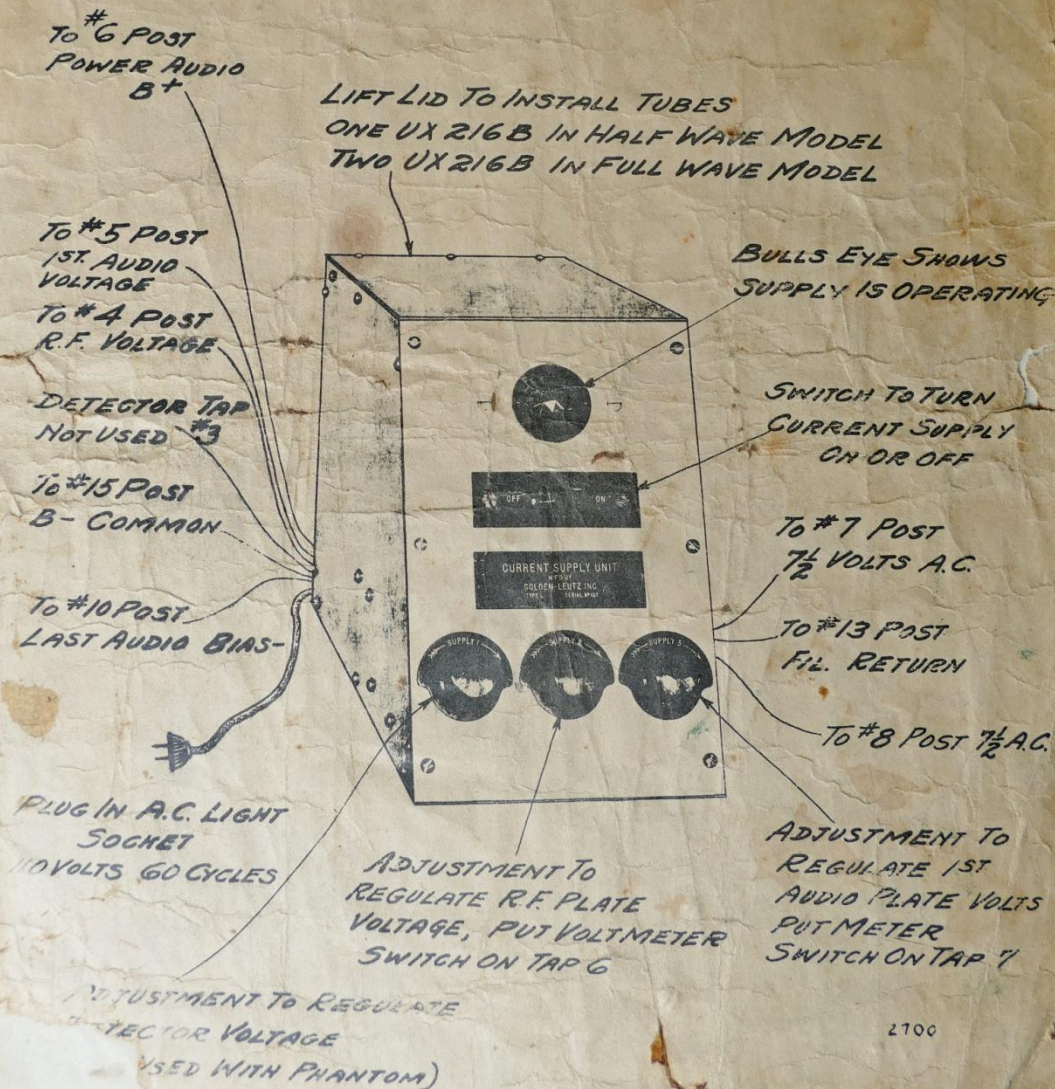 To #6 POST
POWER AUDIO
B+
LIFT LID TO INSTALL TUBES
ONE UX 216 B IN HALF WAVE MODEL
TWO UX 216 B IN FULL WAVE MODEL
To #5 POST
1ST. AUDIO
VOLTAGE
To #4 POST
R.F. VOLTAGE
DETECTOR TAP
NOT USED #3
To #15 POST
B- COMMON
To #10 POST
LAST AUDIO BIAS-
BULLS EYE SHOWS
SUPPLY IS OPERATING
SWITCH TO TURN
CURRENT SUPPLY
ON OR OFF
OFF ON
CURRENT SUPPLY UNIT
MF'D BY
GOLDEN-LEUTZ INC.
TYPE SERIAL Nº
SUPPLY 1
SUPPLY 2
SUPPLY 3
To #7 POST
7½ VOLTS A.C.
To #13 POST
FIL. RETURN
To #8 POST 7½ A.C.
PLUG IN A.C. LIGHT
SOCKET
VOLTS 60 CYCLES
ADJUSTMENT TO
REGULATE R.F. PLATE
VOLTAGE, PUT VOLTMETER
SWITCH ON TAP 6
ADJUSTMENT TO
REGULATE 1ST
AUDIO PLATE VOLTS
PUT METER
SWITCH ON TAP 7
ADJUSTMENT TO REGULATE
DETECTOR VOLTAGE
USED WITH PHANTOM)
2700